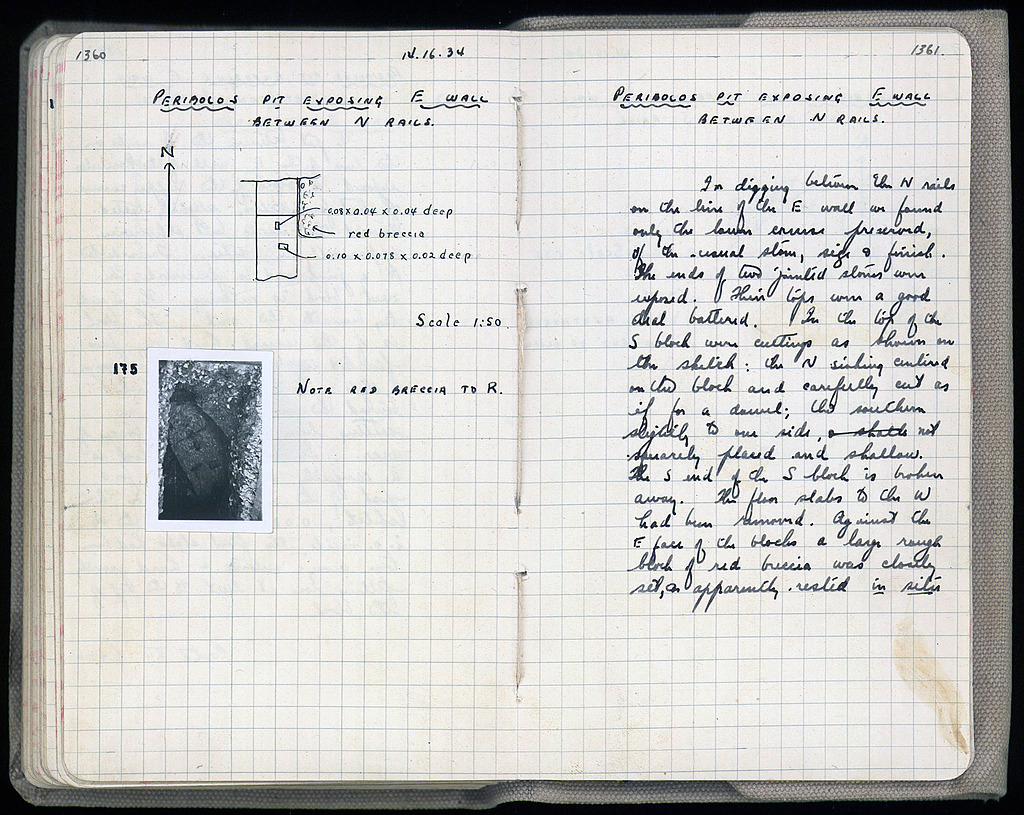 1360
14.16.34
PERIBOLOS PIT EXPOSING E WALL
BETWEEN N RAILS.
N
0.08 x 0.04 x 0.04 deep
red breccia
0.10 x 0.075 x 0.02 deep
Scale 1:50.
175
NOTE RED BRECCIA TO R.
1361.
PERIBOLOS PIT EXPOSING E WALL
BETWEEN N RAILS.
In digging between the N rails
on the line of the E wall we found
only the lower course preserved,
of the usual stone, size & finish.
The ends of two jointed stones were
exposed. Their tops were a good
deal battered. In the top of the
S block were cuttings as shown on
the sketch: the N sinking centered
on the block and carefully cut as
if for a dowel; the southern
slightly to one side, not
squarely placed and shallow.
The S end of the S block is broken
away. The floor slabs to the W
had been removed. Against the
E face of the blocks a large rough
block of red breccia was closely
set, apparently rested in situ